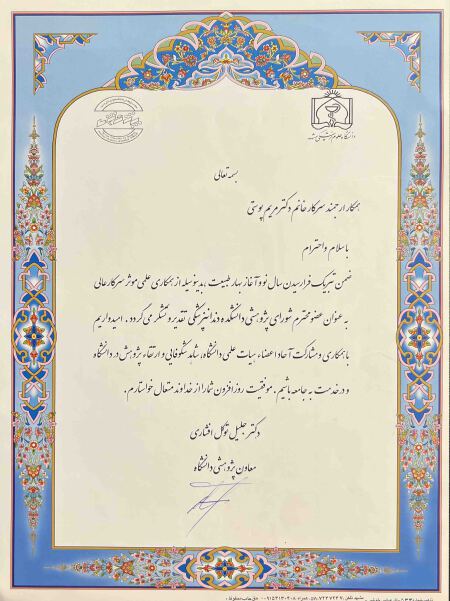 دانشگاه علوم پزشکی مشهد
بسمه تعالی
همکار ارجمند سرکار خانم دکتر مریم پوستی
با سلام و احترام
ضمن تبریک فرارسیدن سال نو و آغاز بهار طبیعت، بدینوسیله از همکاری علمی موثر سرکارعالی
به عنوان عضو محترم شورای پژوهشی دانشکده دندانپزشکی تقدیر و تشکر می گردد. امیدواریم
با همکاری و مشارکت آحاد اعضاء هیات علمی دانشگاه، شاهد شکوفایی و ارتقاء پژوهش در دانشگاه
و در خدمت به جامعه باشیم. موفقیت روز افزون شما را از خداوند متعال خواستارم.
دکتر جلیل توکل افشاری
معاون پژوهشی دانشگاه